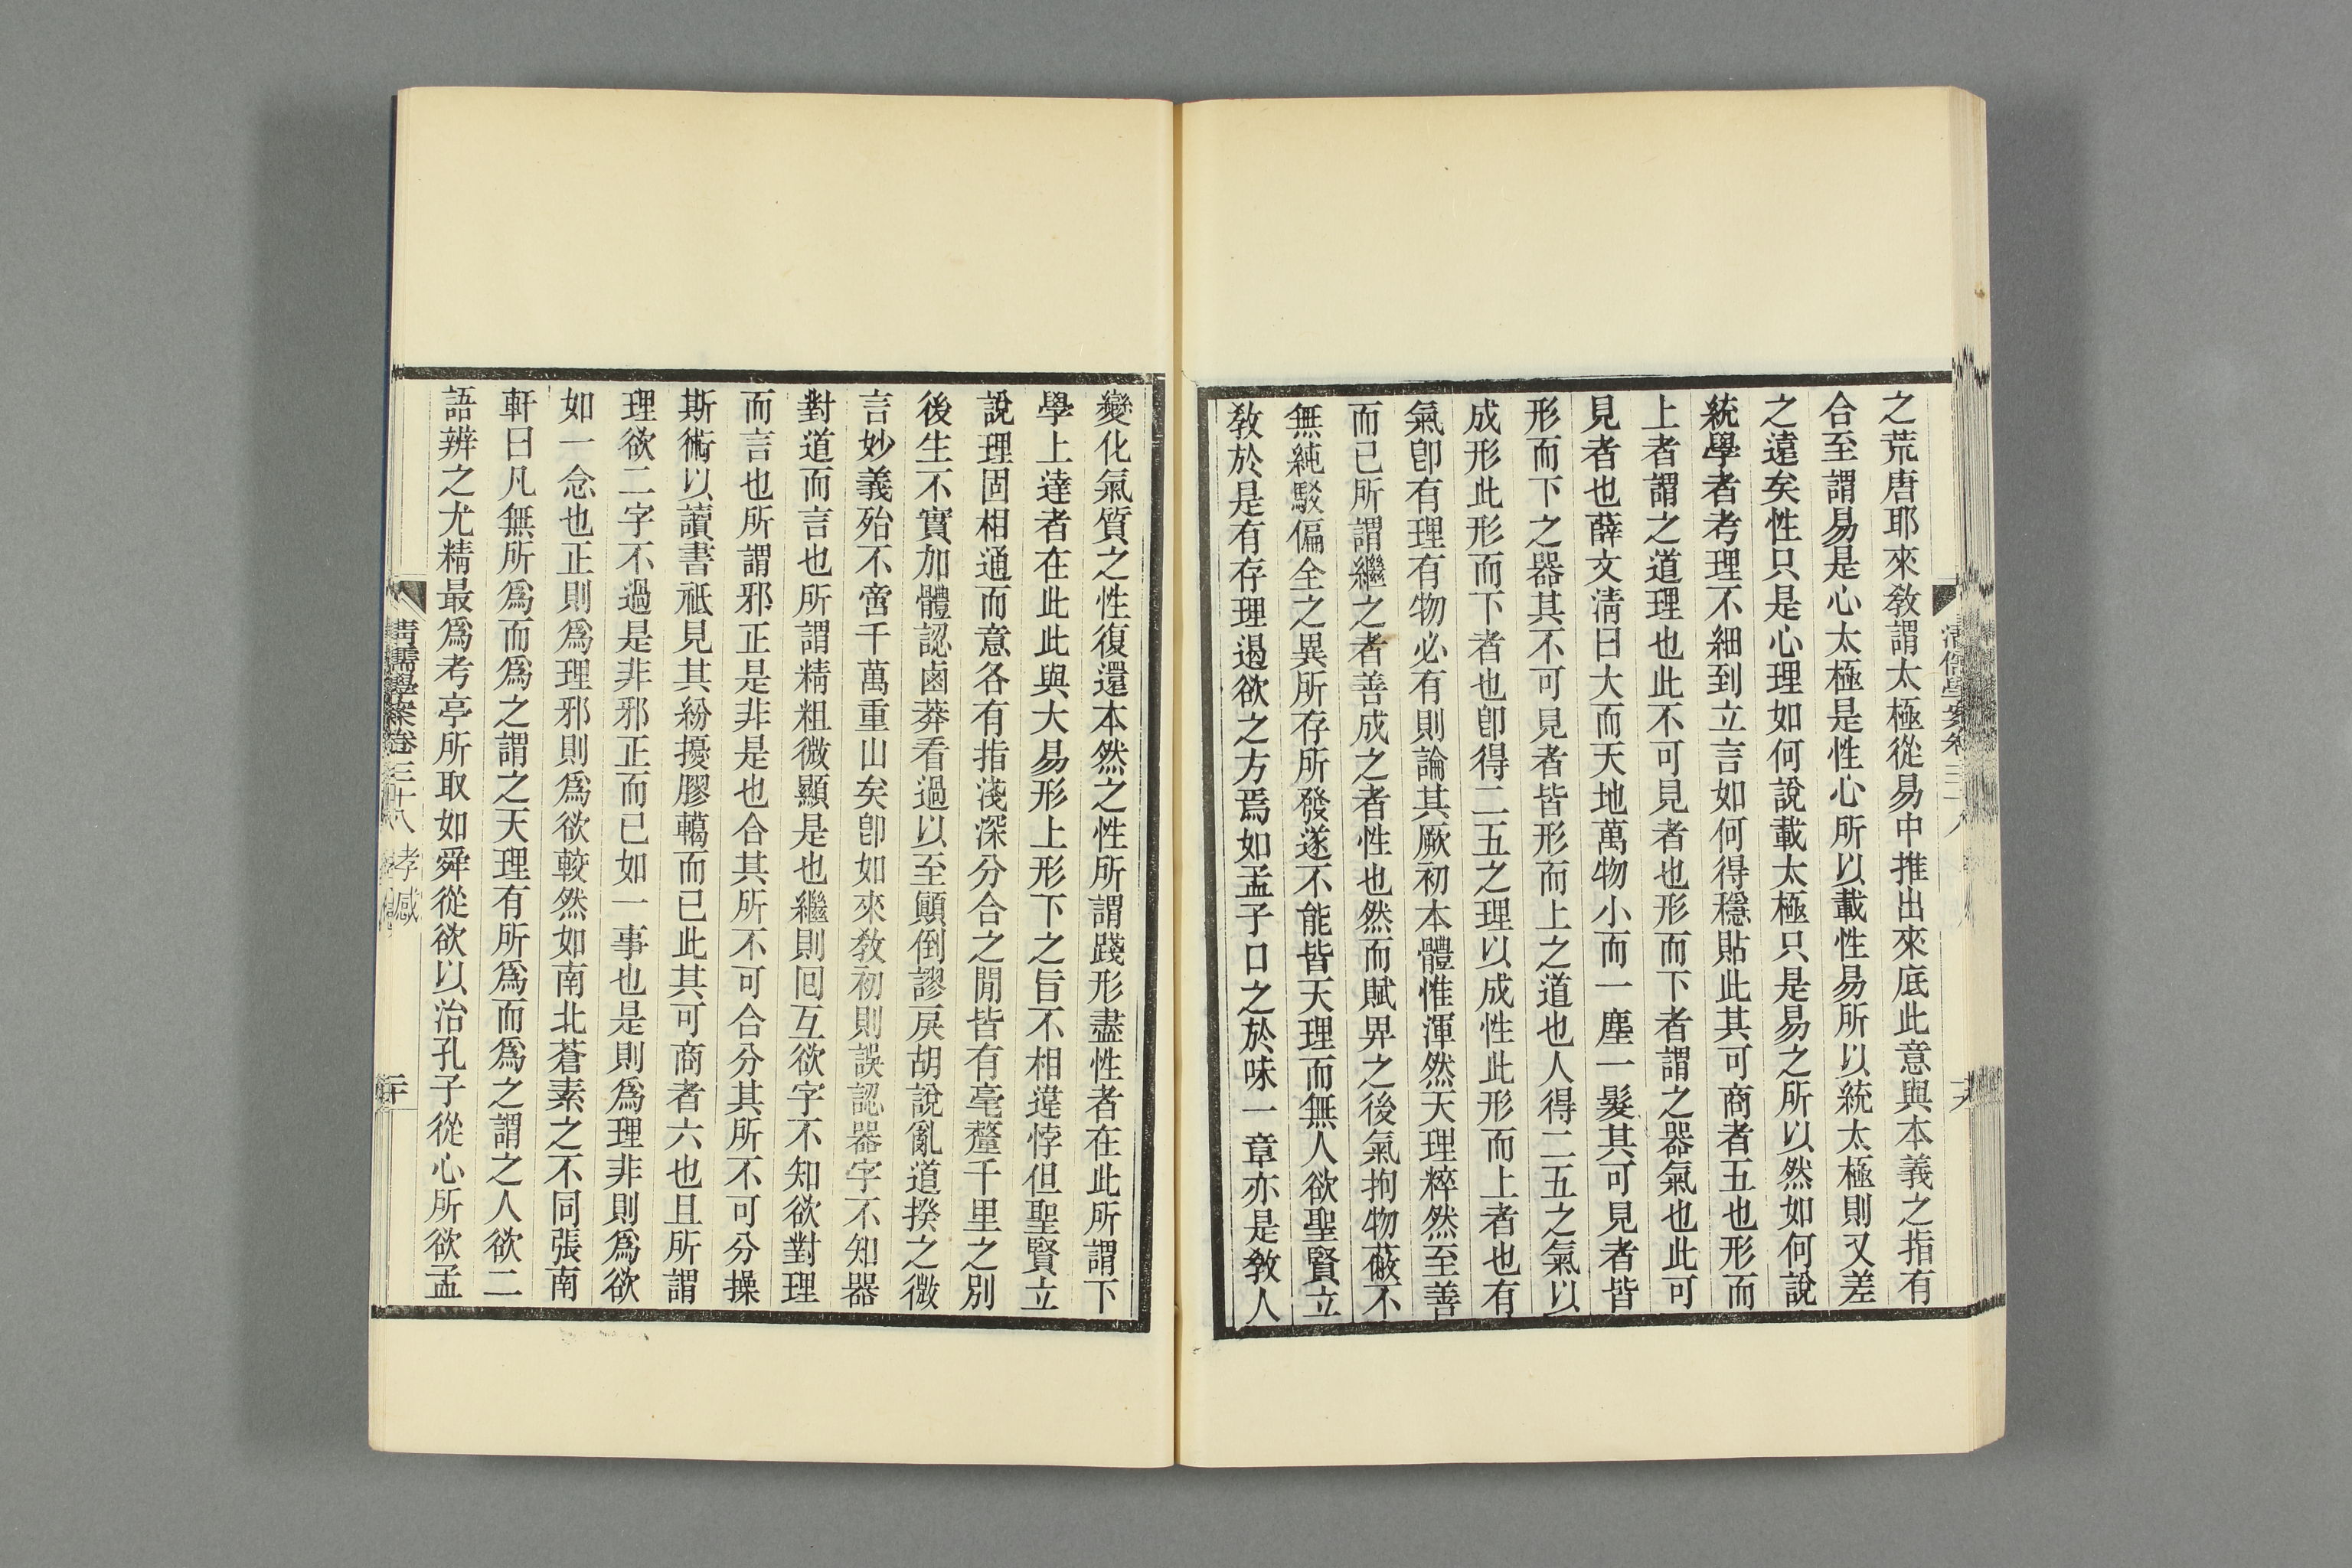 之荒唐耶來敎謂太極從易中推出來底此意與本義之指有
合至謂易是心太極是性心所以載性易所以統太極則又差
之遠矣性只是心理如何說載太極只是易之所以然如何說
統學者考理不細到立言如何得穩貼此其可商者五也形而
上者謂之道理也此不可見者也形而下者謂之器氣也此可
見者也薛文淸曰大而天地萬物小而一塵一髮其可見者皆
形而下之器其不可見者皆形而上之道也人得二五之氣以
成形此形而下者也卽得二五之理以成性此形而上者也有
氣卽有理有物必有則論其厥初本體惟渾然天理粹然至善
而已所謂繼之者善成之者性也然而賦畀之後氣拘物蔽不
無純駁偏全之異所存所發遂不能皆天理而無人欲聖賢立
敎於是有存理遏欲之方焉如孟子口之於味一章亦是敎人
變化氣質之性復還本然之性所謂踐形盡性者在此所謂下
學上達者在此此與大易形上形下之旨不相違悖但聖賢立
說理固相通而意各有指淺深分合之閒皆有毫釐千里之別
後生不實加體認鹵莽看過以至顚倒謬戾胡說亂道揆之微
言妙義殆不啻千萬重山矣卽如來敎初則誤認器字不知器
對道而言也所謂精粗微顯是也繼則囘互欲字不知欲對理
而言也所謂邪正是非是也合其所不可合分其所不可分操
斯術以讀書祗見其紛擾膠轕而已此其可商者六也且所謂
理欲二字不過是非邪正而已如一事也是則爲理非則爲欲
如一念也正則爲理邪則爲欲較然如南北蒼素之不同張南
軒曰凡無所爲而爲之謂之天理有所爲而爲之謂之人欲二
語辨之尤精最爲考亭所取如舜從欲以治孔子從心所欲孟
淸儒學案卷三十八 孝感
二十